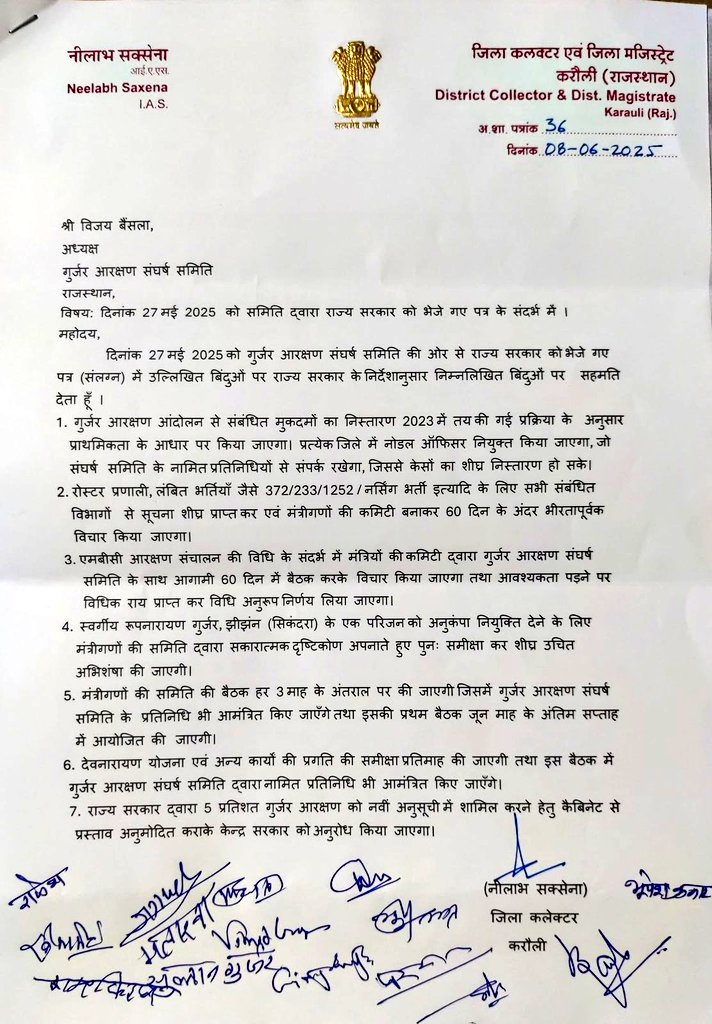 नीलाभ सक्सेना
आई.ए.एस.
Neelabh Saxena
I.A.S.
सत्यमेव जयते
जिला कलक्टर एवं जिला मजिस्ट्रेट
करौली (राजस्थान)
District Collector & Dist. Magistrate
Karauli (Raj.)
अ.शा. पत्रांक 36
दिनांक 08-06-2025
श्री विजय बैंसला,
अध्यक्ष
गुर्जर आरक्षण संघर्ष समिति
राजस्थान,
विषय: दिनांक 27 मई 2025 को समिति द्वारा राज्य सरकार को भेजे गए पत्र के संदर्भ में ।
महोदय,
दिनांक 27 मई 2025 को गुर्जर आरक्षण संघर्ष समिति की ओर से राज्य सरकार को भेजे गए
पत्र (संलग्न) में उल्लिखित बिंदुओं पर राज्य सरकार के निर्देशानुसार निम्नलिखित बिंदुओं पर सहमति
देता हूँ ।
1. गुर्जर आरक्षण आंदोलन से संबंधित मुकदमों का निस्तारण 2023 में तय की गई प्रक्रिया के अनुसार
प्राथमिकता के आधार पर किया जाएगा। प्रत्येक जिले में नोडल ऑफिसर नियुक्त किया जाएगा, जो
संघर्ष समिति के नामित प्रतिनिधियों से संपर्क रखेगा, जिससे केसों का शीघ्र निस्तारण हो सके।
2. रोस्टर प्रणाली, लंबित भर्तियाँ जैसे 372/233/1252 / नर्सिंग भर्ती इत्यादि के लिए सभी संबंधित
विभागों से सूचना शीघ्र प्राप्त कर एवं मंत्रीगणों की कमिटी बनाकर 60 दिन के अंदर भीरतापूर्वक
विचार किया जाएगा।
3. एमबीसी आरक्षण संचालन की विधि के संदर्भ में मंत्रियों की कमिटी द्वारा गुर्जर आरक्षण संघर्ष
समिति के साथ आगामी 60 दिन में बैठक करके विचार किया जाएगा तथा आवश्यकता पड़ने पर
विधिक राय प्राप्त कर विधि अनुरूप निर्णय लिया जाएगा।
4. स्वर्गीय रूपनारायण गुर्जर, झीझंन (सिकंदरा) के एक परिजन को अनुकंपा नियुक्ति देने के लिए
मंत्रीगणों की समिति द्वारा सकारात्मक दृष्टिकोण अपनाते हुए पुनः समीक्षा कर शीघ्र उचित
अभिशंषा की जाएगी।
5. मंत्रीगणों की समिति की बैठक हर 3 माह के अंतराल पर की जाएगी जिसमें गुर्जर आरक्षण संघर्ष
समिति के प्रतिनिधि भी आमंत्रित किए जाएँगे तथा इसकी प्रथम बैठक जून माह के अंतिम सप्ताह
में आयोजित की जाएगी।
6. देवनारायण योजना एवं अन्य कार्यों की प्रगति की समीक्षा प्रतिमाह की जाएगी तथा इस बैठक में
गुर्जर आरक्षण संघर्ष समिति द्वारा नामित प्रतिनिधि भी आमंत्रित किए जाएँगे।
7. राज्य सरकार द्वारा 5 प्रतिशत गुर्जर आरक्षण को नवीं अनुसूची में शामिल करने हेतु कैबिनेट से
प्रस्ताव अनुमोदित कराके केन्द्र सरकार को अनुरोध किया जाएगा।
(नीलाभ सक्सेना)
जिला कलेक्टर
करौली